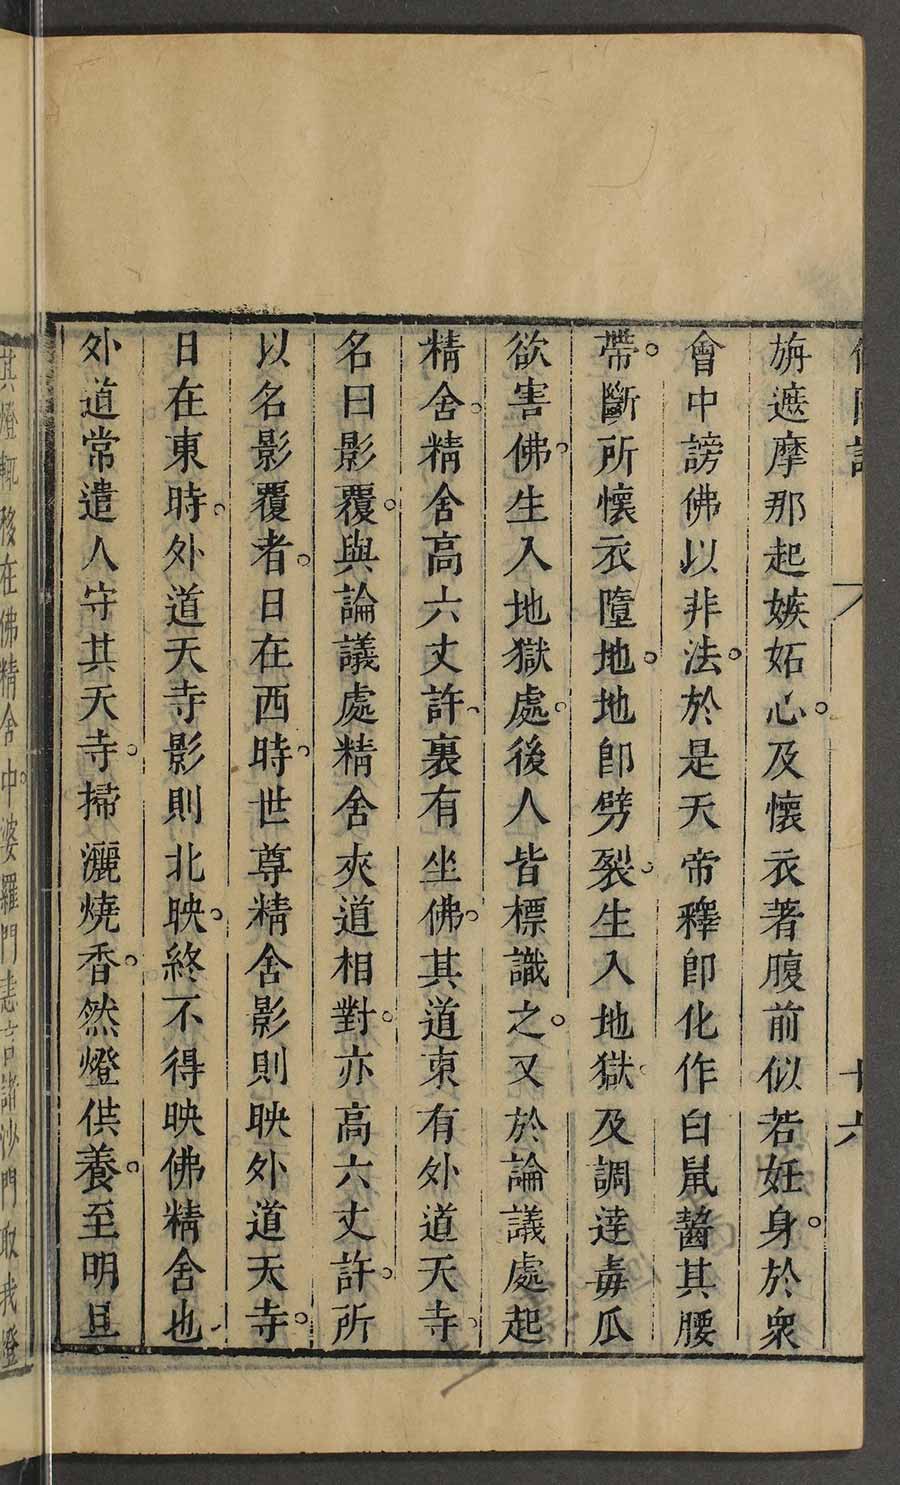 旃遮摩那起嫉妬心。及懷衣著腹前似若妊身。於衆
會中謗佛以非法。於是天帝釋即化作白鼠齧其腰
帶。斷所懷衣墮地。地即劈裂。生入地獄。及調達毒瓜
欲害佛。生入地獄處。後人皆標識之。又於論議處起
精舍。精舍高六丈許、裏有坐佛。其道東有外道天寺、
名曰影覆。與論議處精舍夾道相對。亦高六丈許。所
以名影覆者。日在西時、世尊精舍影則映外道天寺。
日在東時、外道天寺影則北映。終不得映佛精舍也
外道常遣人守其天寺。掃灑燒香。然燈供養。至明旦
其燈輒移在佛精舍中。婆羅門恚言諸沙門取我燈